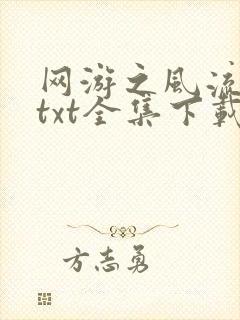 网游之风流
txt全集下载
方志勇